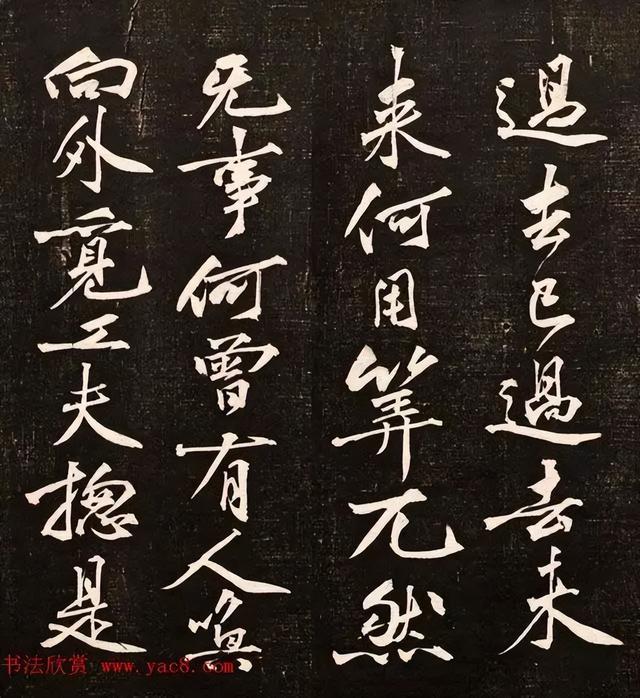 過去已過去未
来何用筭兀然
无事何曾有人喚
向外覓工夫揔是
书法欣赏 www.yac8.com